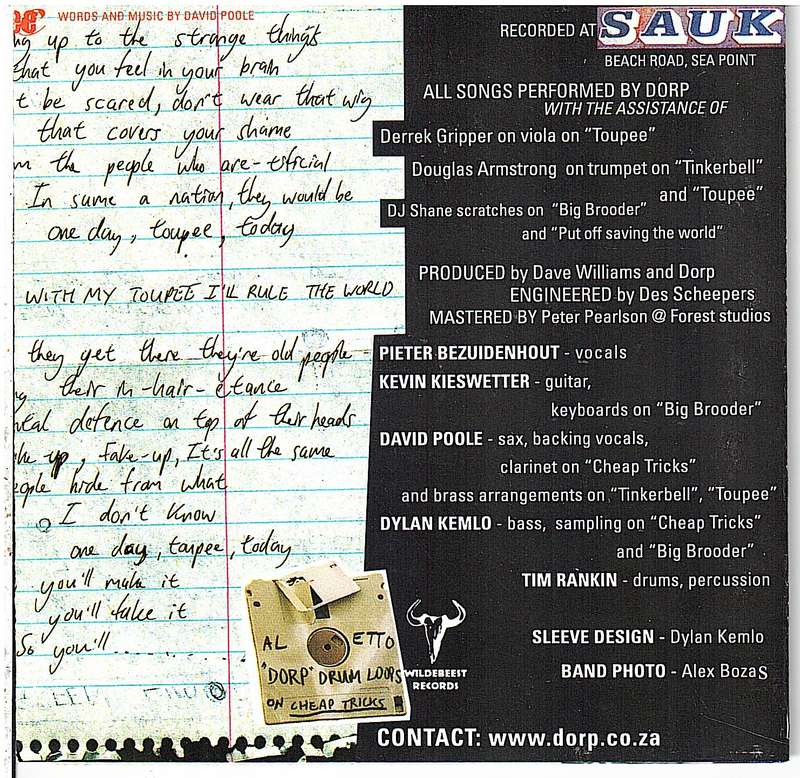 WORDS AND MUSIC BY DAVID POOLE
up to the strange things
that you feel in your brain
t be scared, don't wear that wig
that covers your shame
the people who are-tificial
In sume a nation, they would be
one day, toupee, today
WITH MY TOUPEE I'LL RULE THE WORLD
they get there they're old people -
their in-hair-etance
tal defence on top of their heads
up, fake-up, It's all the same
people hide from what
I don't know
one day, toupee, today
you'll make it
you'll fake it
So you'll ..........
AL ETTO
"DORP" DRUM LOOPS
ON CHEAP TRICKS
RECORDED AT SAUK
BEACH ROAD, SEA POINT
ALL SONGS PERFORMED BY DORP
WITH THE ASSISTANCE OF
Derrek Gripper on viola on "Toupee"
Douglas Armstrong on trumpet on "Tinkerbell"
and "Toupee"
DJ Shane scratches on "Big Brooder"
and "Put off saving the world"
PRODUCED by Dave Williams and Dorp
ENGINEERED by Des Scheepers
MASTERED BY Peter Pearlson @ Forest studios
PIETER BEZUIDENHOUT - vocals
KEVIN KIESWETTER - guitar,
keyboards on "Big Brooder"
DAVID POOLE - sax, backing vocals,
clarinet on "Cheap Tricks"
and brass arrangements on "Tinkerbell", "Toupee"
DYLAN KEMLO - bass, sampling on "Cheap Tricks"
and "Big Brooder"
TIM RANKIN - drums, percussion
WILDEBEEST
RECORDS
SLEEVE DESIGN - Dylan Kemlo
BAND PHOTO - Alex Bozas
CONTACT: www.dorp.co.za